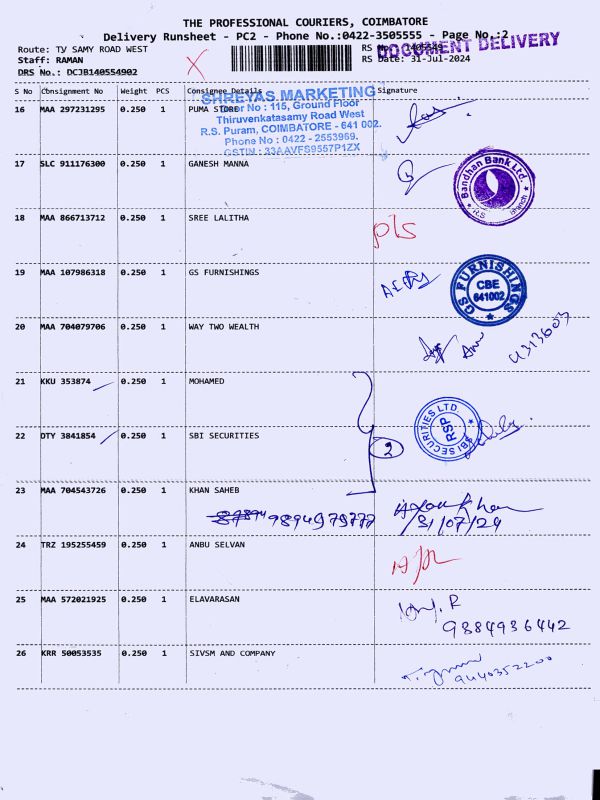 THE PROFESSIONAL COURIERS, COIMBATORE
Delivery Runsheet - PC2 - Phone No.:0422-3505555 - Page No.:2
DOCUMENT DELIVERY
Route: TV SAMY ROAD WEST
Staff: RAMAN
RS Date: 31-Jul-2024
DRS No.: DCJB140554902
S No Consignment No Weight PCS Consignee Details Signature
SHREYAS MARKETING
Door No : 115, Ground Floor
Thiruvenkatasamy Road West
R.S. Puram, COIMBATORE - 641 002.
Phone No : 0422 - 2553969.
GSTIN : 33AAVFS9557P1ZX
16 MAA 297231295 0.250 1 PUMA STORE
17 SLC 911176300 0.250 1 GANESH MANNA
Bandhan Bank Ltd.
R.S
Branch
18 MAA 866713712 0.250 1 SREE LALITHA
pls
19 MAA 107986318 0.250 1 GS FURNISHINGS
GS FURNISHINGS
CBE
641002
20 MAA 704079706 0.250 1 WAY TWO WEALTH
U313603
21 KKU 353874 0.250 1 MOHAMED
22 OTY 3841854 0.250 1 SBI SECURITIES
2
SBI SECURITIES LTD.
RSP
23 MAA 704543726 0.250 1 KHAN SAHEB
9894979777
31/07/24
24 TRZ 195255459 0.250 1 ANBU SELVAN
25 MAA 572021925 0.250 1 ELAVARASAN
9884936442
26 KRR 50053535 0.250 1 SIVSM AND COMPANY
9440352200